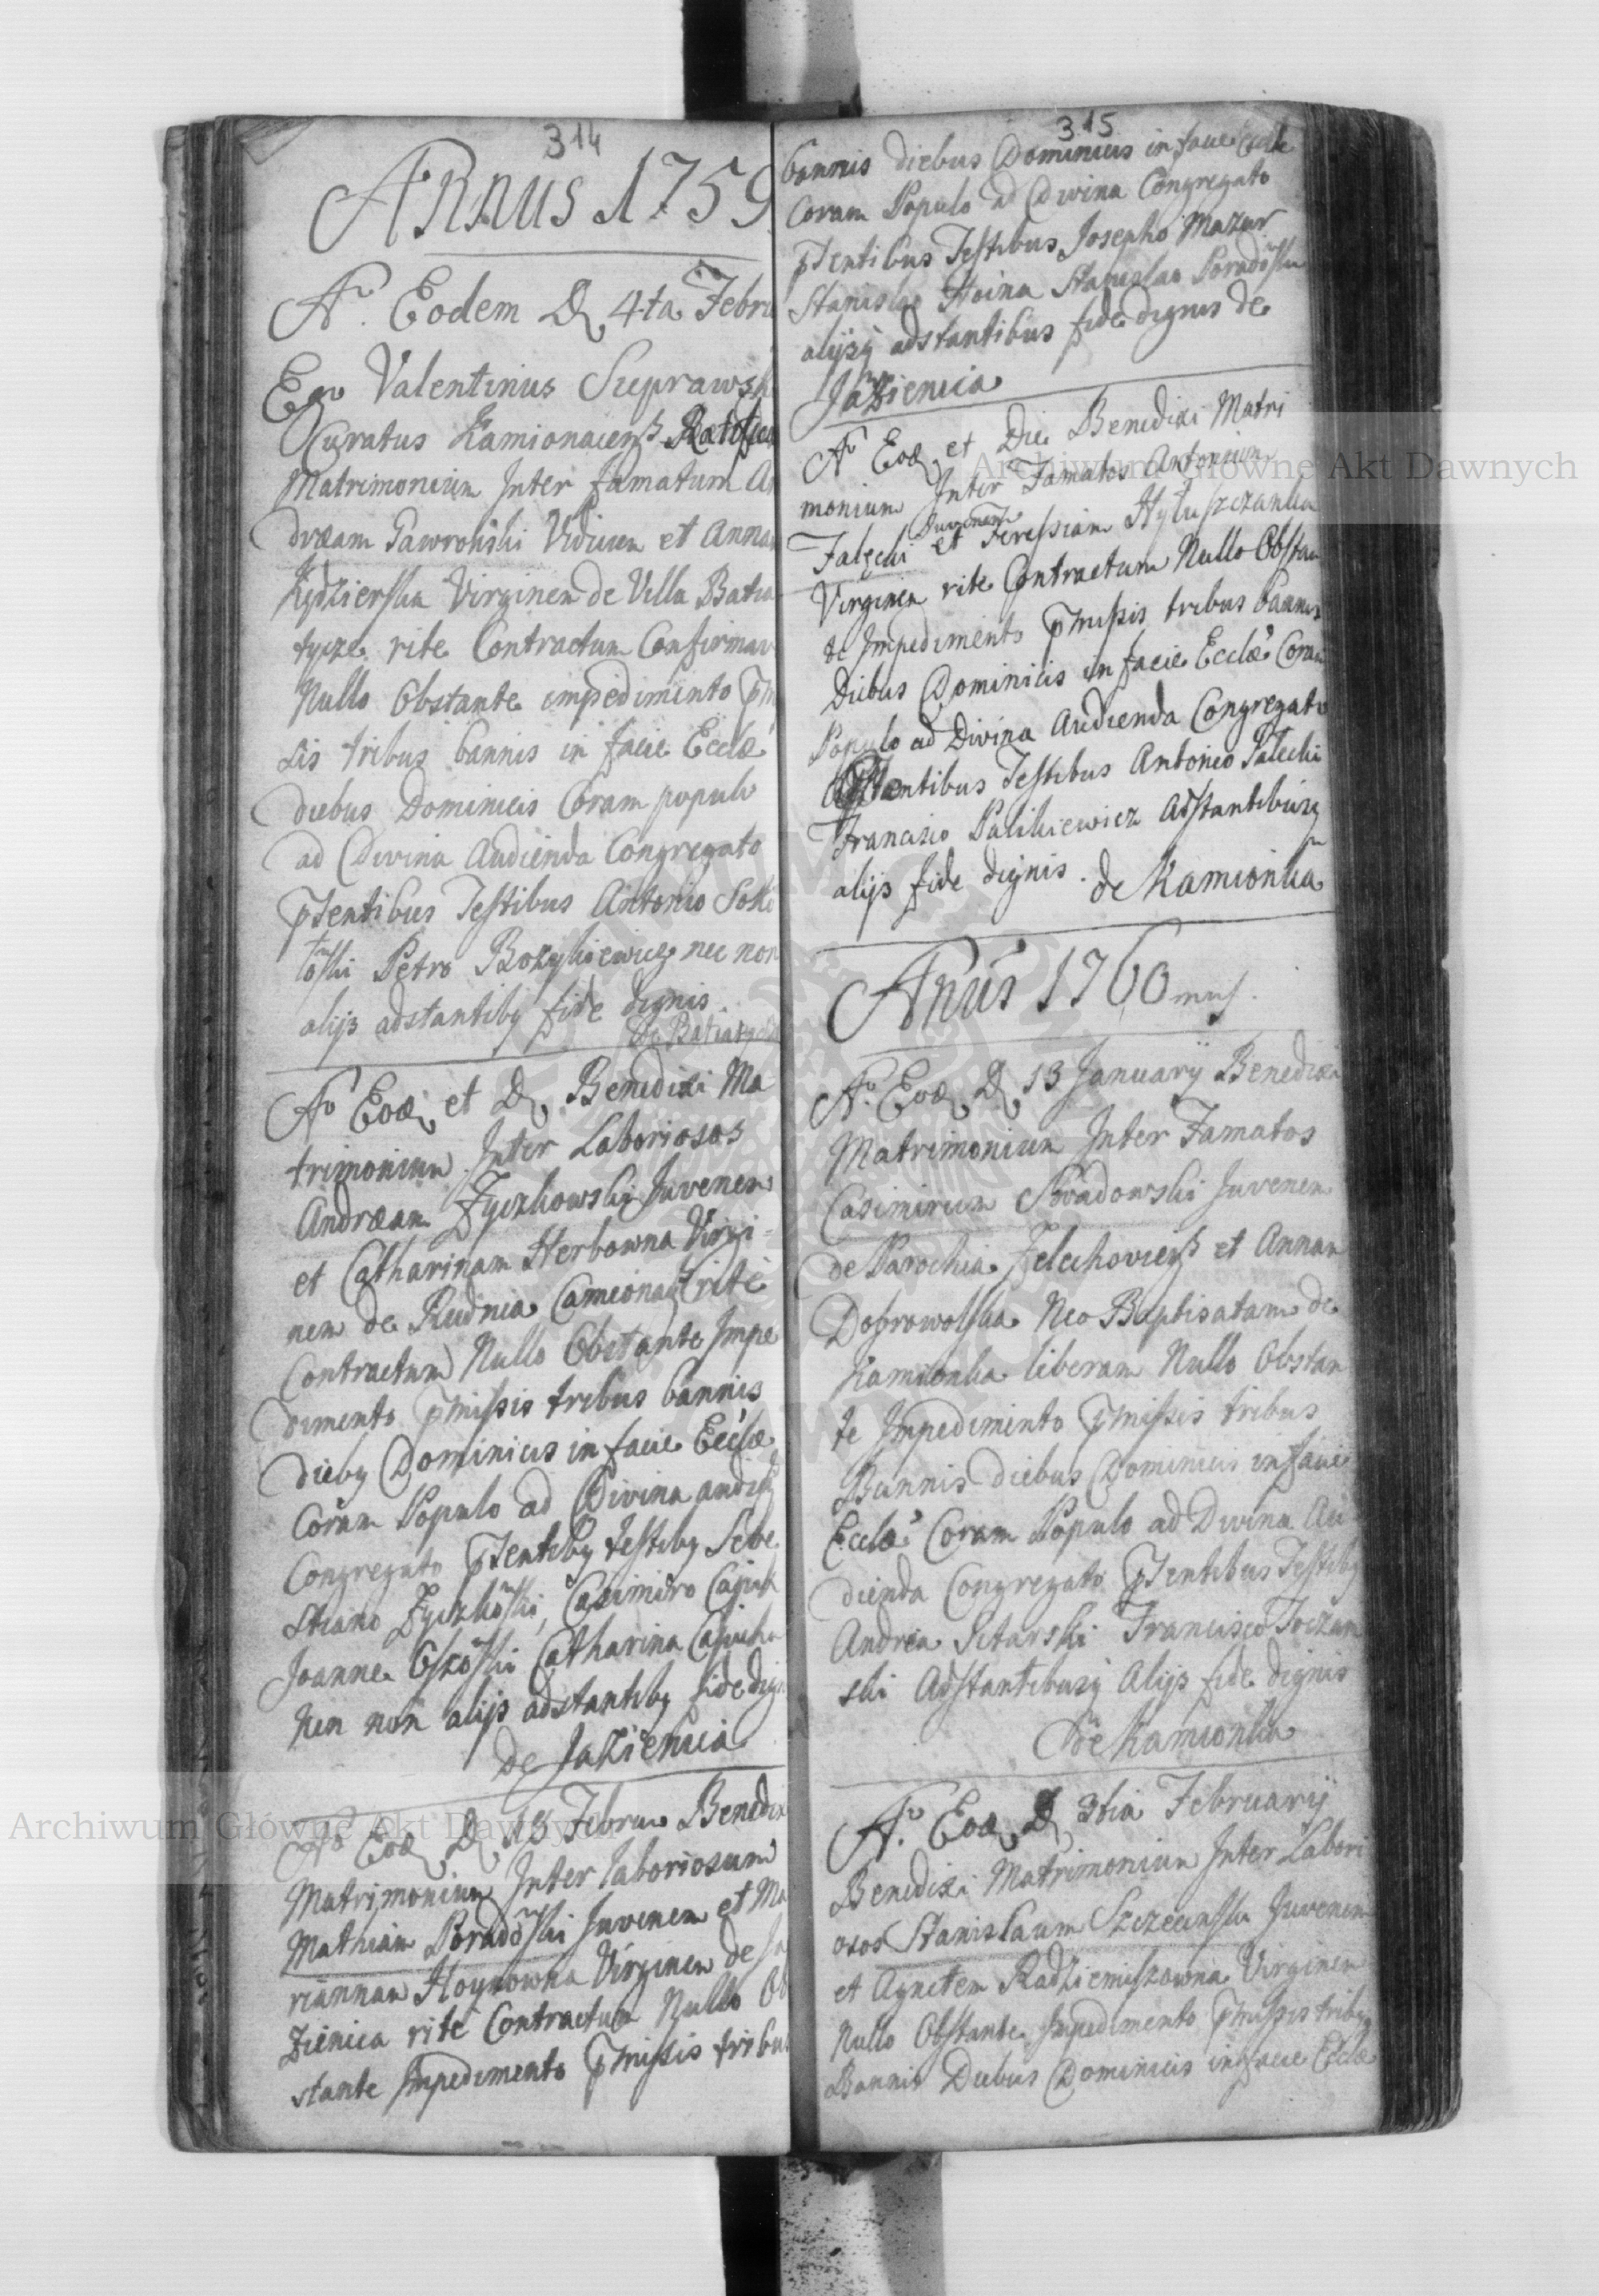 314
Annus 1759
Aº Eodem D 4ta Febru
Ego Valentinus Suprawski
Curatus Kamionacens Ratifica
Matrimonium Inter famatum An
dræam Gawroński Viduum et Annam
Kędzierska Virginem de Villa Batia
tycze rite Contractum Confirmav
Nullo Obstante impedimento pmis
sis tribus bannis in facie Ecclæ
diebus Dominicis Coram populo
ad Divina Audienda Congregato
pntibus Testibus Antonio Soko
łoski Petro Bozykiewicz nec non
alijs adstantibq fide dignis.
de Batiatycze
Aº Eod et D Benedixi Ma
trimonium Inter Laboriosos
Andræam Zyczkowski Juvenem
et Catharinam Herbowna Virgi-
nem de Rudnia Camionac rite
Contractum Nullo Obstante Impe
dimento pmissis tribus bannis
diebq Dominicis in facie Ecclæ
Coram Populo ad Divina audien
Congregato pntibq testibq Seba
stiano Zyczkoski, Casimiro
Joanne Catharina
Nec non alijs adstantibq fide dig
de Jazienica
Aº Eod D 18 Febru Benedixi
Matrimonium Inter laboriosum
Mathiam Poradoski Juvenem et Ma
riannam Hoynowna Virginem de Ja
zienica rite Contractum Nullo Ob
stante Impedimento pmissis tribus
315
bannis diebus Dominicis in facie Eccle
Coram Populo ad Divina Congregato
pntibus Testibus Josepho Mazur
Stanislao Hoina Stanislao Poradoski
alijsq adstantibus fide dignis de
Jazienica
Aº Eod et Die Benedixi Matri
monium Inter Famatos Antonium
Juvenem
Falęcki et Teressiam Hyłuszczanka
Virginem rite Contractum Nullo Obstan
te Impedimento pmissis tribus bannis
Diebus Dominicis in facie Ecclæ Coram
Populo ad Divina Audienda Congregato
pntibus Testibus Antonio Falecki
Francisco Palikiewicz Adstantibusq
alijs fide dignis. de Kamionka
Anus 1760mus.
Aº Eod D 13 Januarij Benedixi
Matrimonium Inter Famatos
Casimirum Juvenem
de Parochia Zelechoviens et Annam
Dobrowolska Neo Baptisatam de
Kamionka liberam Nullo Obstan
te Impedimento pmissis tribus
Bannis diebus Dominicis in facie
Ecclæ Coram Populo ad Divina Au
dienda Congregato pntibus Testibq
Andrea Sitarski Francisco Toczam
ski Adstantibusq Alijs fide dignis
de Kamionka
Aº Eod D 3tia Februarij
Benedixi Matrimonium Inter Labori
osos Stanislaum Szczecinski Juvenem
et Agnetem Radziemiszowna Virginem
Nullo Obstante Impedimento pmissis tribq
Bannis Diebus Dominicis in facie Ecclæ
Archiwum Główne Akt Dawnych
Archiwum Główne Akt Dawnych